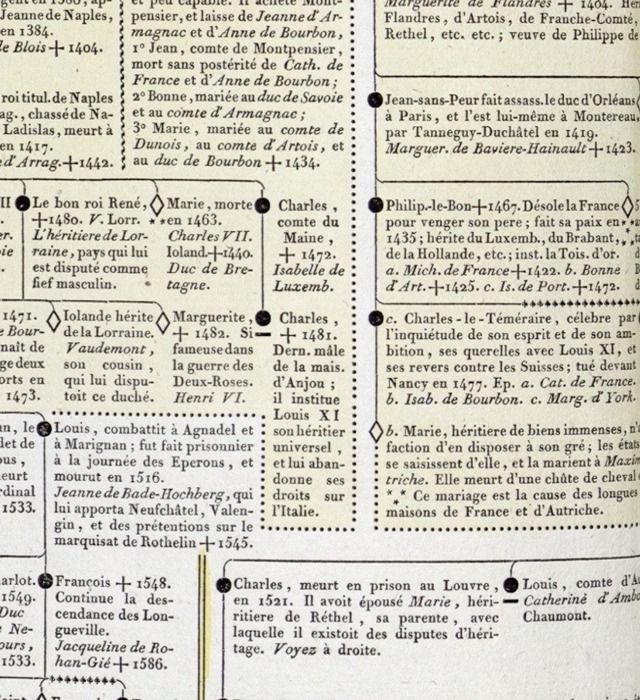 Jeanne de Naples,
en 1384.
de Blois + 1404.
roi titul. de Naples
ag., chassé de Na-
Ladislas, meurt à
en 1417.
d'Arrag. + 1442.
et peu capable. Il achète Mont-
pensier, et laisse de Jeanne d'Ar-
magnac et d'Anne de Bourbon,
1° Jean, comte de Montpensier,
mort sans postérité de Cath. de
France et d'Anne de Bourbon;
2° Bonne, mariée au duc de Savoie
et au comte d'Armagnac;
3° Marie, mariée au comte de
Dunois, au comte d'Artois, et
au duc de Bourbon + 1434.
Marguerite de Flandres + 1404. Hér
Flandres, d'Artois, de Franche-Comté,
Rethel, etc. etc.; veuve de Philippe de
Jean-sans-Peur fait assass. le duc d'Orléans
à Paris, et l'est lui-même à Montereau,
par Tanneguy-Duchâtel en 1419.
Marguer. de Baviere-Hainault + 1423.
Philip.-le-Bon + 1467. Désole la France
pour venger son pere; fait sa paix en
1435; hérite du Luxemb., du Brabant,
de la Hollande, etc.; inst. la Tois. d'or.
a. Mich. de France + 1422. b. Bonne
d'Art. + 1425. c. Is. de Port. + 1472.
c. Charles-le-Téméraire, célebre par
l'inquiétude de son esprit et de son am-
bition, ses querelles avec Louis XI, et
ses revers contre les Suisses; tué devant
Nancy en 1477. Ep. a. Cat. de France.
b. Isab. de Bourbon. c. Marg. d'York.
b. Marie, héritiere de biens immenses, n'
faction d'en disposer à son gré; les états
se saisissent d'elle, et la marient à Maxim
triche. Elle meurt d'une chûte de cheval
*** Ce mariage est la cause des longues
maisons de France et d'Autriche.
II
Le bon roi René,
+ 1480. V. Lorr.
L'héritiere de Lor-
raine, pays qui lui
est disputé comme
fief masculin.
Marie, morte
en 1463.
Charles VII.
Ioland. + 1440.
Duc de Bre-
tagne.
Charles,
comte du
Maine,
+ 1472.
Isabelle de
Luxemb.
1471.
e Bour-
naît de
ge deux
orts en
1473.
Iolande hérite
de la Lorraine.
Vaudemont,
son cousin,
qui lui dispu-
toit ce duché.
Marguerite,
+ 1482. Si
fameuse dans
la guerre des
Deux-Roses.
Henri VI.
Charles,
+ 1481.
Dern. mâle
de la mais.
d'Anjou;
il institue
Louis XI
son héritier
universel,
et lui aban-
donne ses
droits sur
l'Italie.
an, le
det de
ous,
eurt
rdinal
1533.
Louis, combattit à Agnadel et
à Marignan; fut fait prisonnier
à la journée des Eperons, et
mourut en 1516.
Jeanne de Bade-Hochberg, qui
lui apporta Neufchâtel, Valen-
gin, et des prétentions sur le
marquisat de Rothelin + 1545.
arlot.
1549.
Duc
Ne-
ours,
1533.
François + 1548.
Continue la des-
cendance des Lon-
gueville.
Jacqueline de Ro-
han-Gié + 1586.
Charles, meurt en prison au Louvre,
en 1521. Il avoit épousé Marie, héri-
ritiere de Réthel, sa parente, avec
laquelle il existoit des disputes d'héri-
tage. Voyez à droite.
Louis, comte d'Au
Catherine d'Ambo
Chaumont.